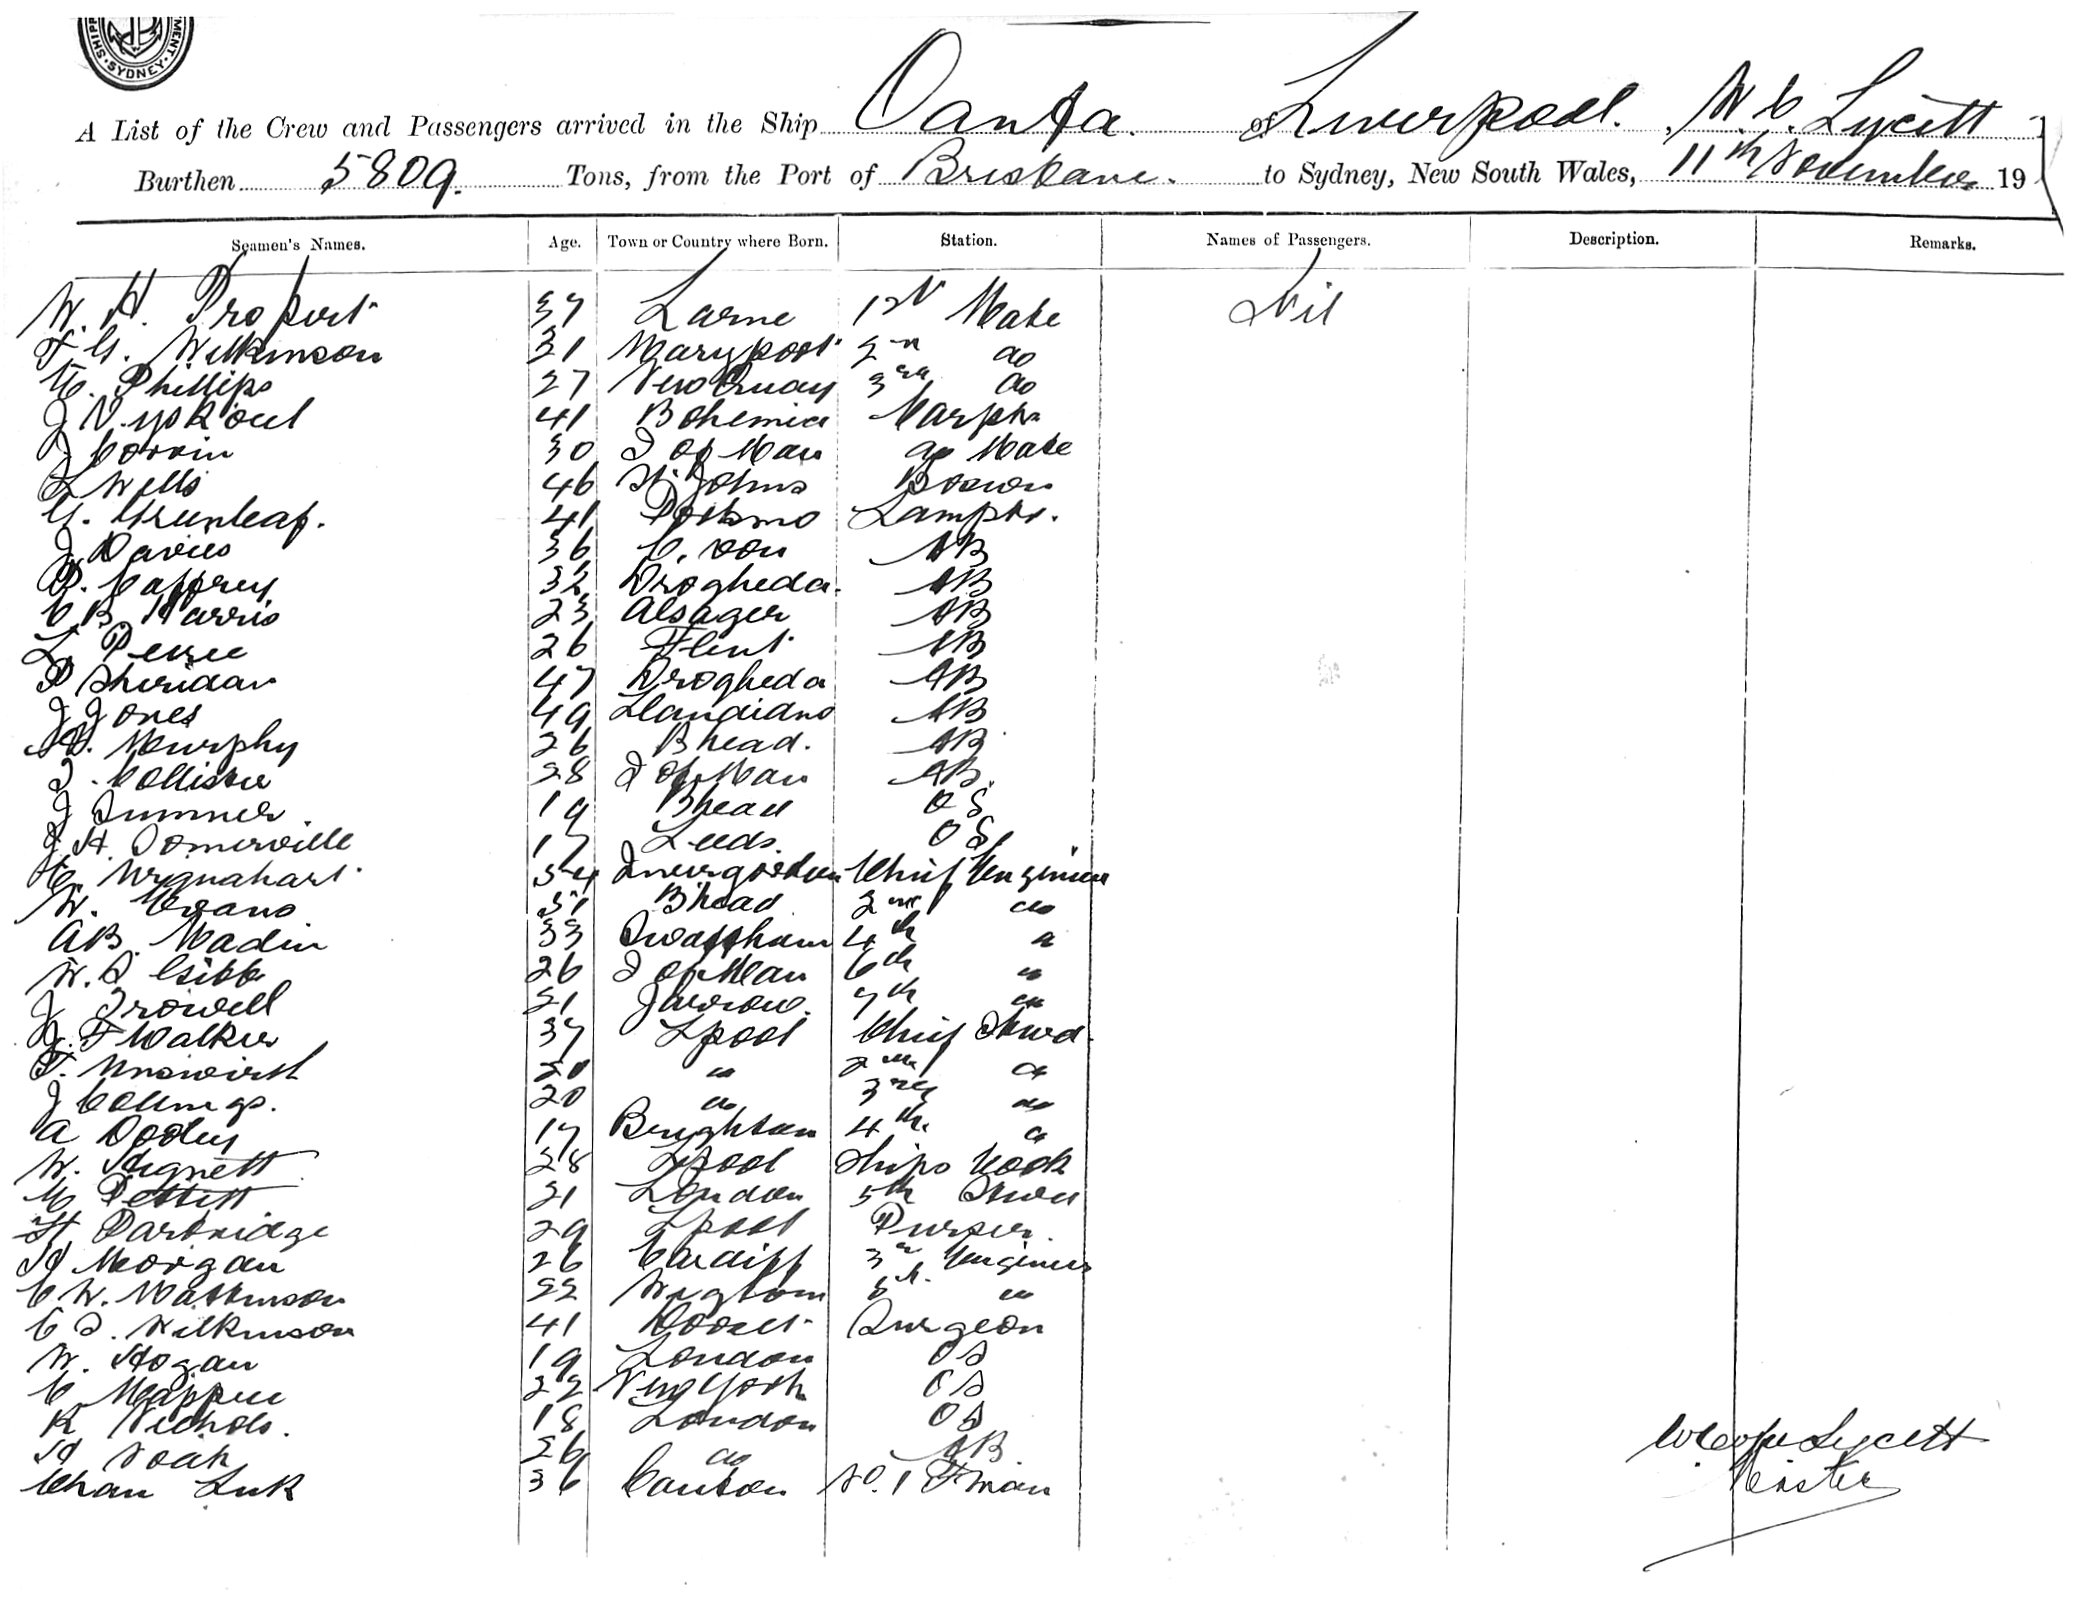 SHIP MENT SYDNEY
A List of the Crew and Passengers arrived in the Ship Oanfa. of Liverpool. W. C. Lycett
Burthen 5809. Tons, from the Port of Brisbane. to Sydney, New South Wales, 11th November 19
Seamen's Names. Age. Town or Country where Born. Station. Names of Passengers. Description. Remarks.
W. H. Propert 37 Larne 1st Mate Nil
F. G. Wilkinson 31 Maryport 2n do
E. Phillips 27 New Quay 3rd do
J Vyskocil 41 Bohemia Carptr
J Corrin 30 I of Man ao Mate
L Wells 46 St Johns Boswn
G. Greenleaf. 41 Ptsmo Lamptr.
J Davies 36 C. von AB
P. Caffrey 32 Drogheda. AB
C B Harris 23 Alsager AB
L Peirce 26 Flint AB
P Sheridan 47 Drogheda AB
J Jones 49 AB
H. Murphy 26 Bhead. AB
T. Collister 28 I of Man AB.
J Sumner. 19 Bhead O S
J H. Somerville 17 Leeds. O S
E. Urquahart. 54 Invergordon Chief Engineer
W. Evans Bhead 2nd do
AB. Madin 33 Swaffham 4th "
W. S Gibb 26 I of Man 6th "
J Trowell 21 Jarrow. 7th "
J. F Walker 37 Lpool Chief Stwd.
F. Unsworth 20 " 2nd "
J Collings. 20 do 3rd do
A Dooley 17 Brighton 4th. "
W. Hignett 28 Lpool Ships Cook
E Pettitt 21 London 5th Stwd
H Partridge 29 Lpool Purser.
H Morgan 26 Cardiff 3rd Engineer
C W. Matkinson 22 Wigton 5th. "
C S. Wilkinson 41 Dorset Surgeon
W. Hogan 19 London O S
C Mappee 22 New York O S
K Nichols. 18 London O S
H Noah 26 do AB
Chan Luk 36 Canton No. 1 Fman
W Cope Lycett
Master